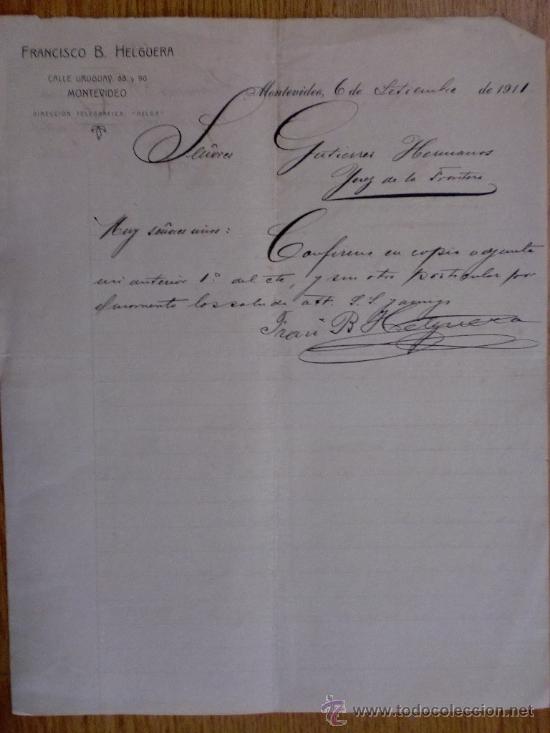 FRANCISCO B. HELGUERA
CALLE URUGUAY 88 y 90
MONTEVIDEO
DIRECCIÓN TELEGRÁFICA "HELGA"
Montevideo, 6 de Setiembre de 1911
Señores Gutierrez Hermanos
Jerez de la Frontera
Muy señores mios: Confirmo en copia adjunta
mi anterior 1º del cte, y sin otro particular por
el momento los saluda att. S. S. y amigo
Fran B Helguera
todocoleccion
www.todocoleccion.net